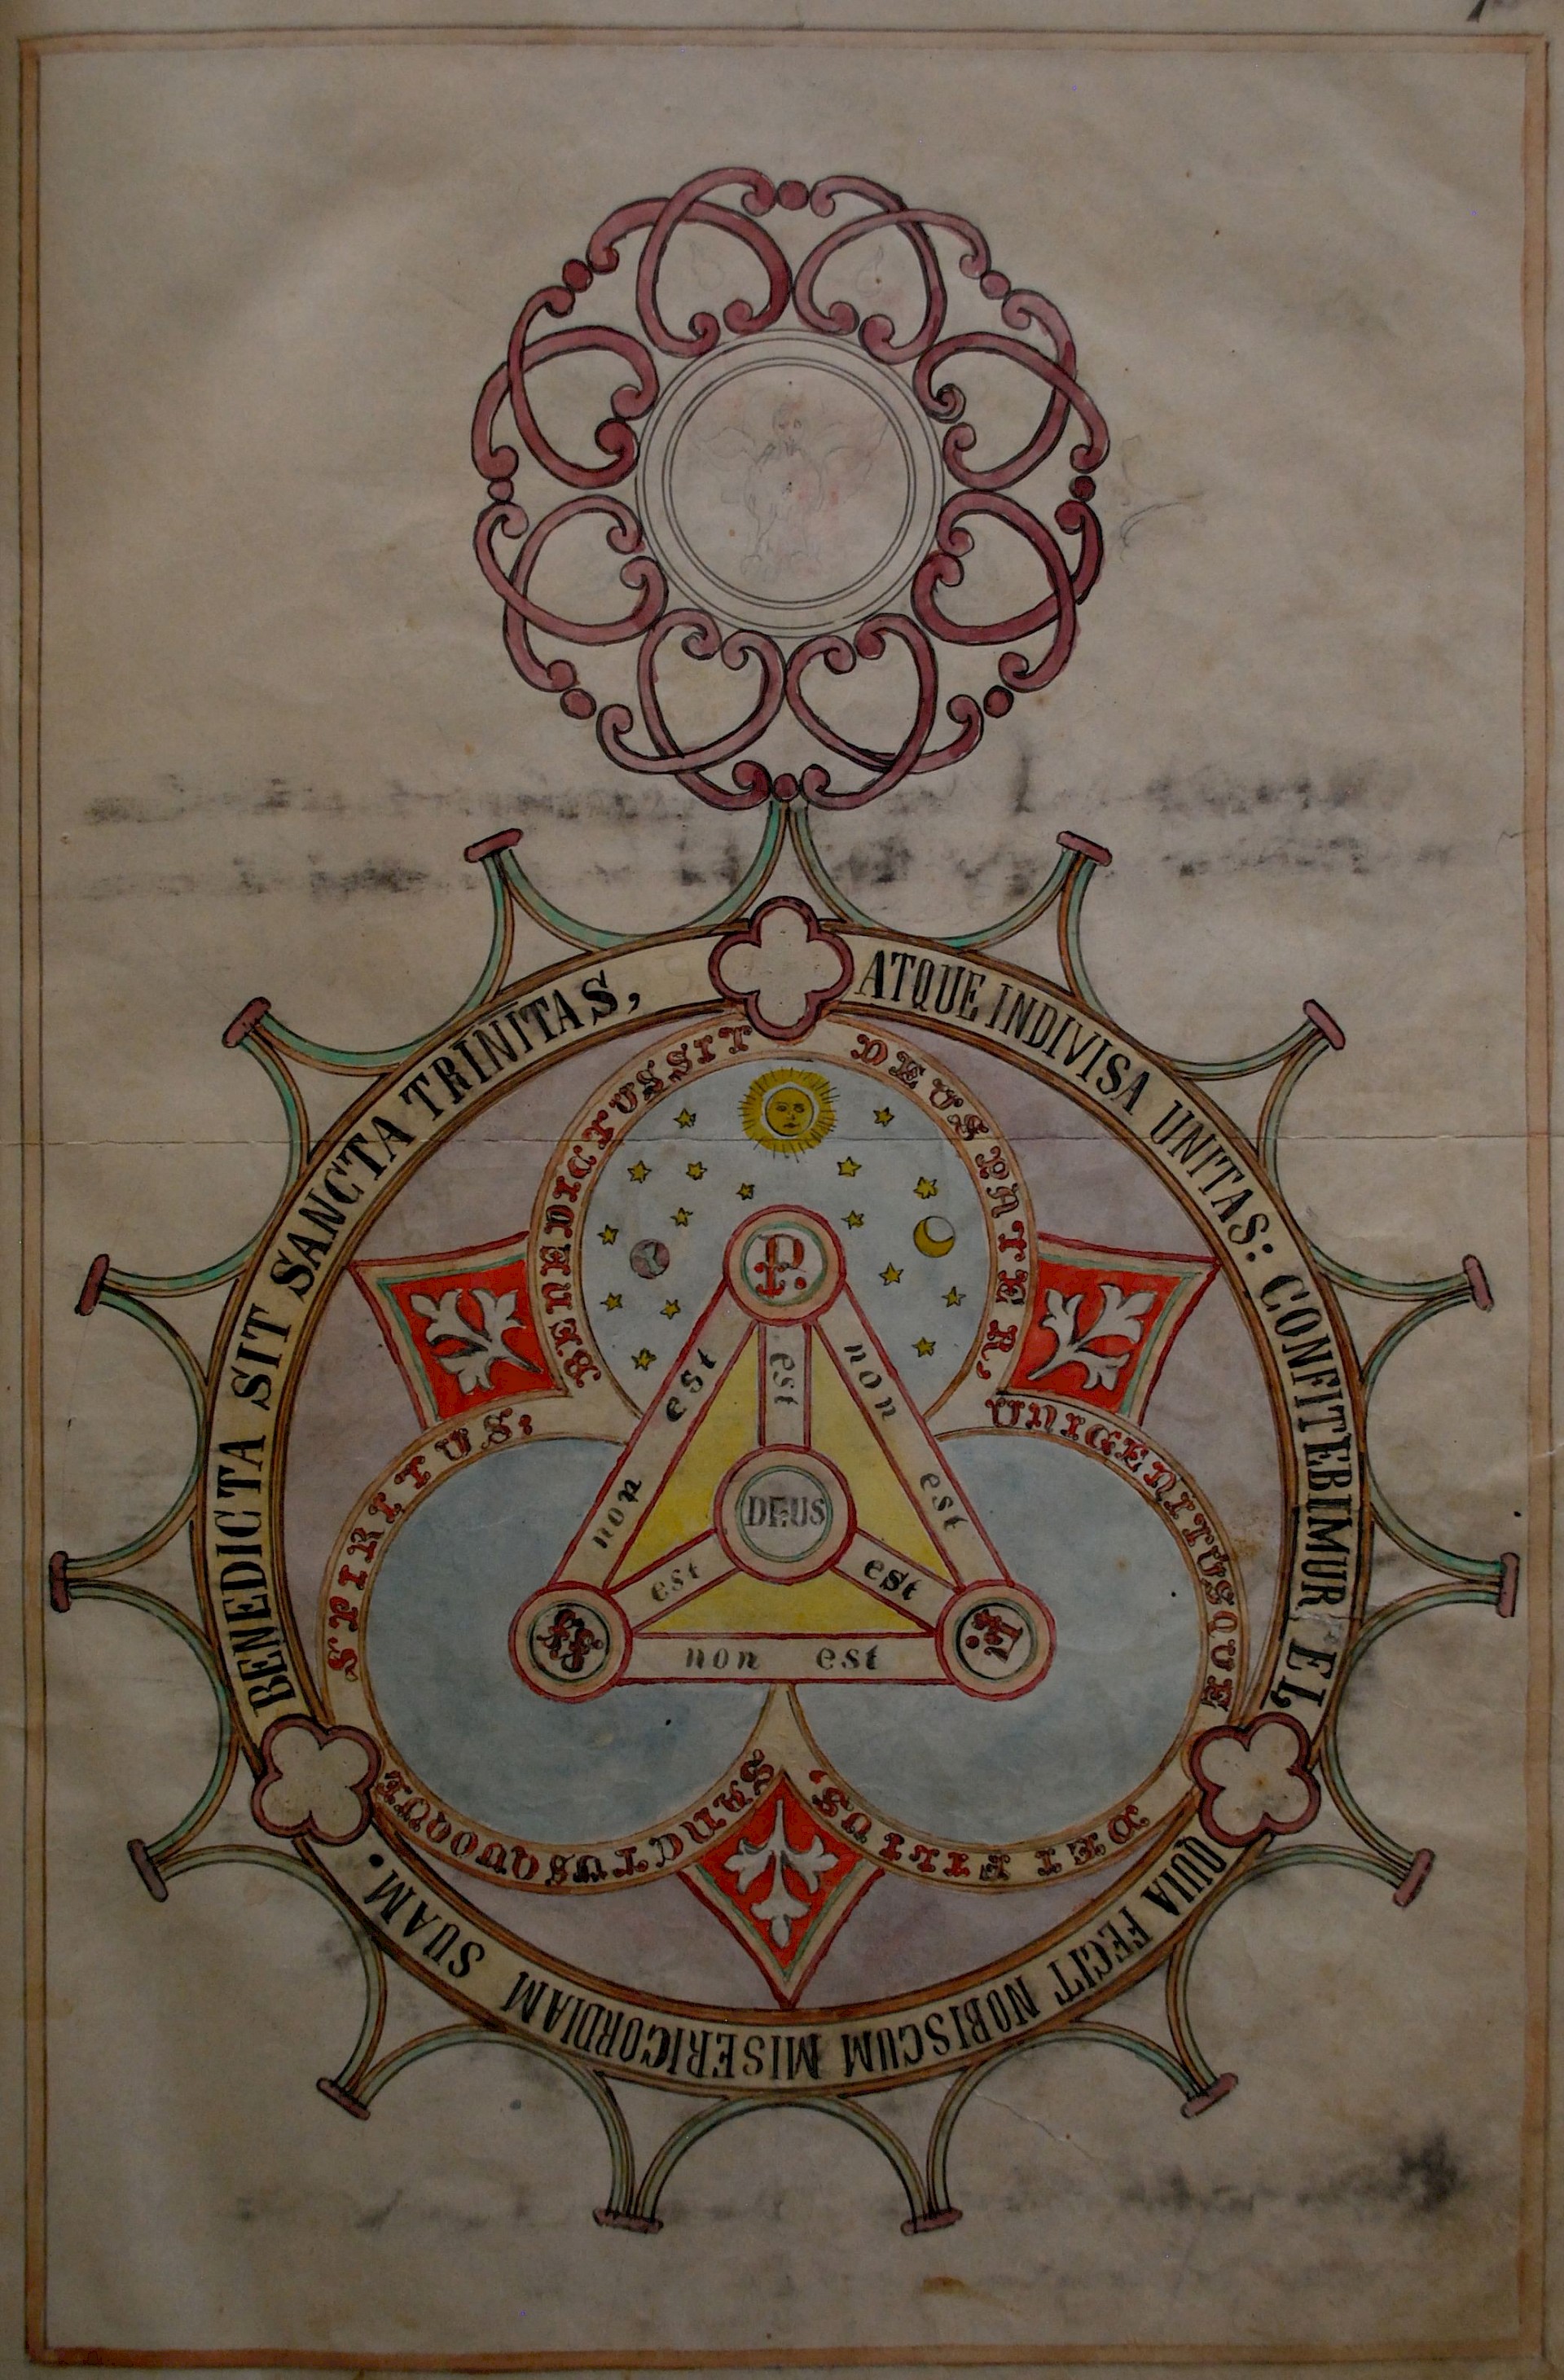 BENEDICTA SIT SANCTA TRINITAS,
ATQUE INDIVISA UNITAS: CONFITEBIMUR EI,
QUIA FECIT NOBISCUM MISERICORDIAM SUAM.
BENEDICTUS SIT
DEUS PATER,
UNIGENITUSQUE
DEI FILIUS,
SANCTUS QUOQUE
SPIRITUS:
P.
non est
est
non est
DEUS
est
est
non est